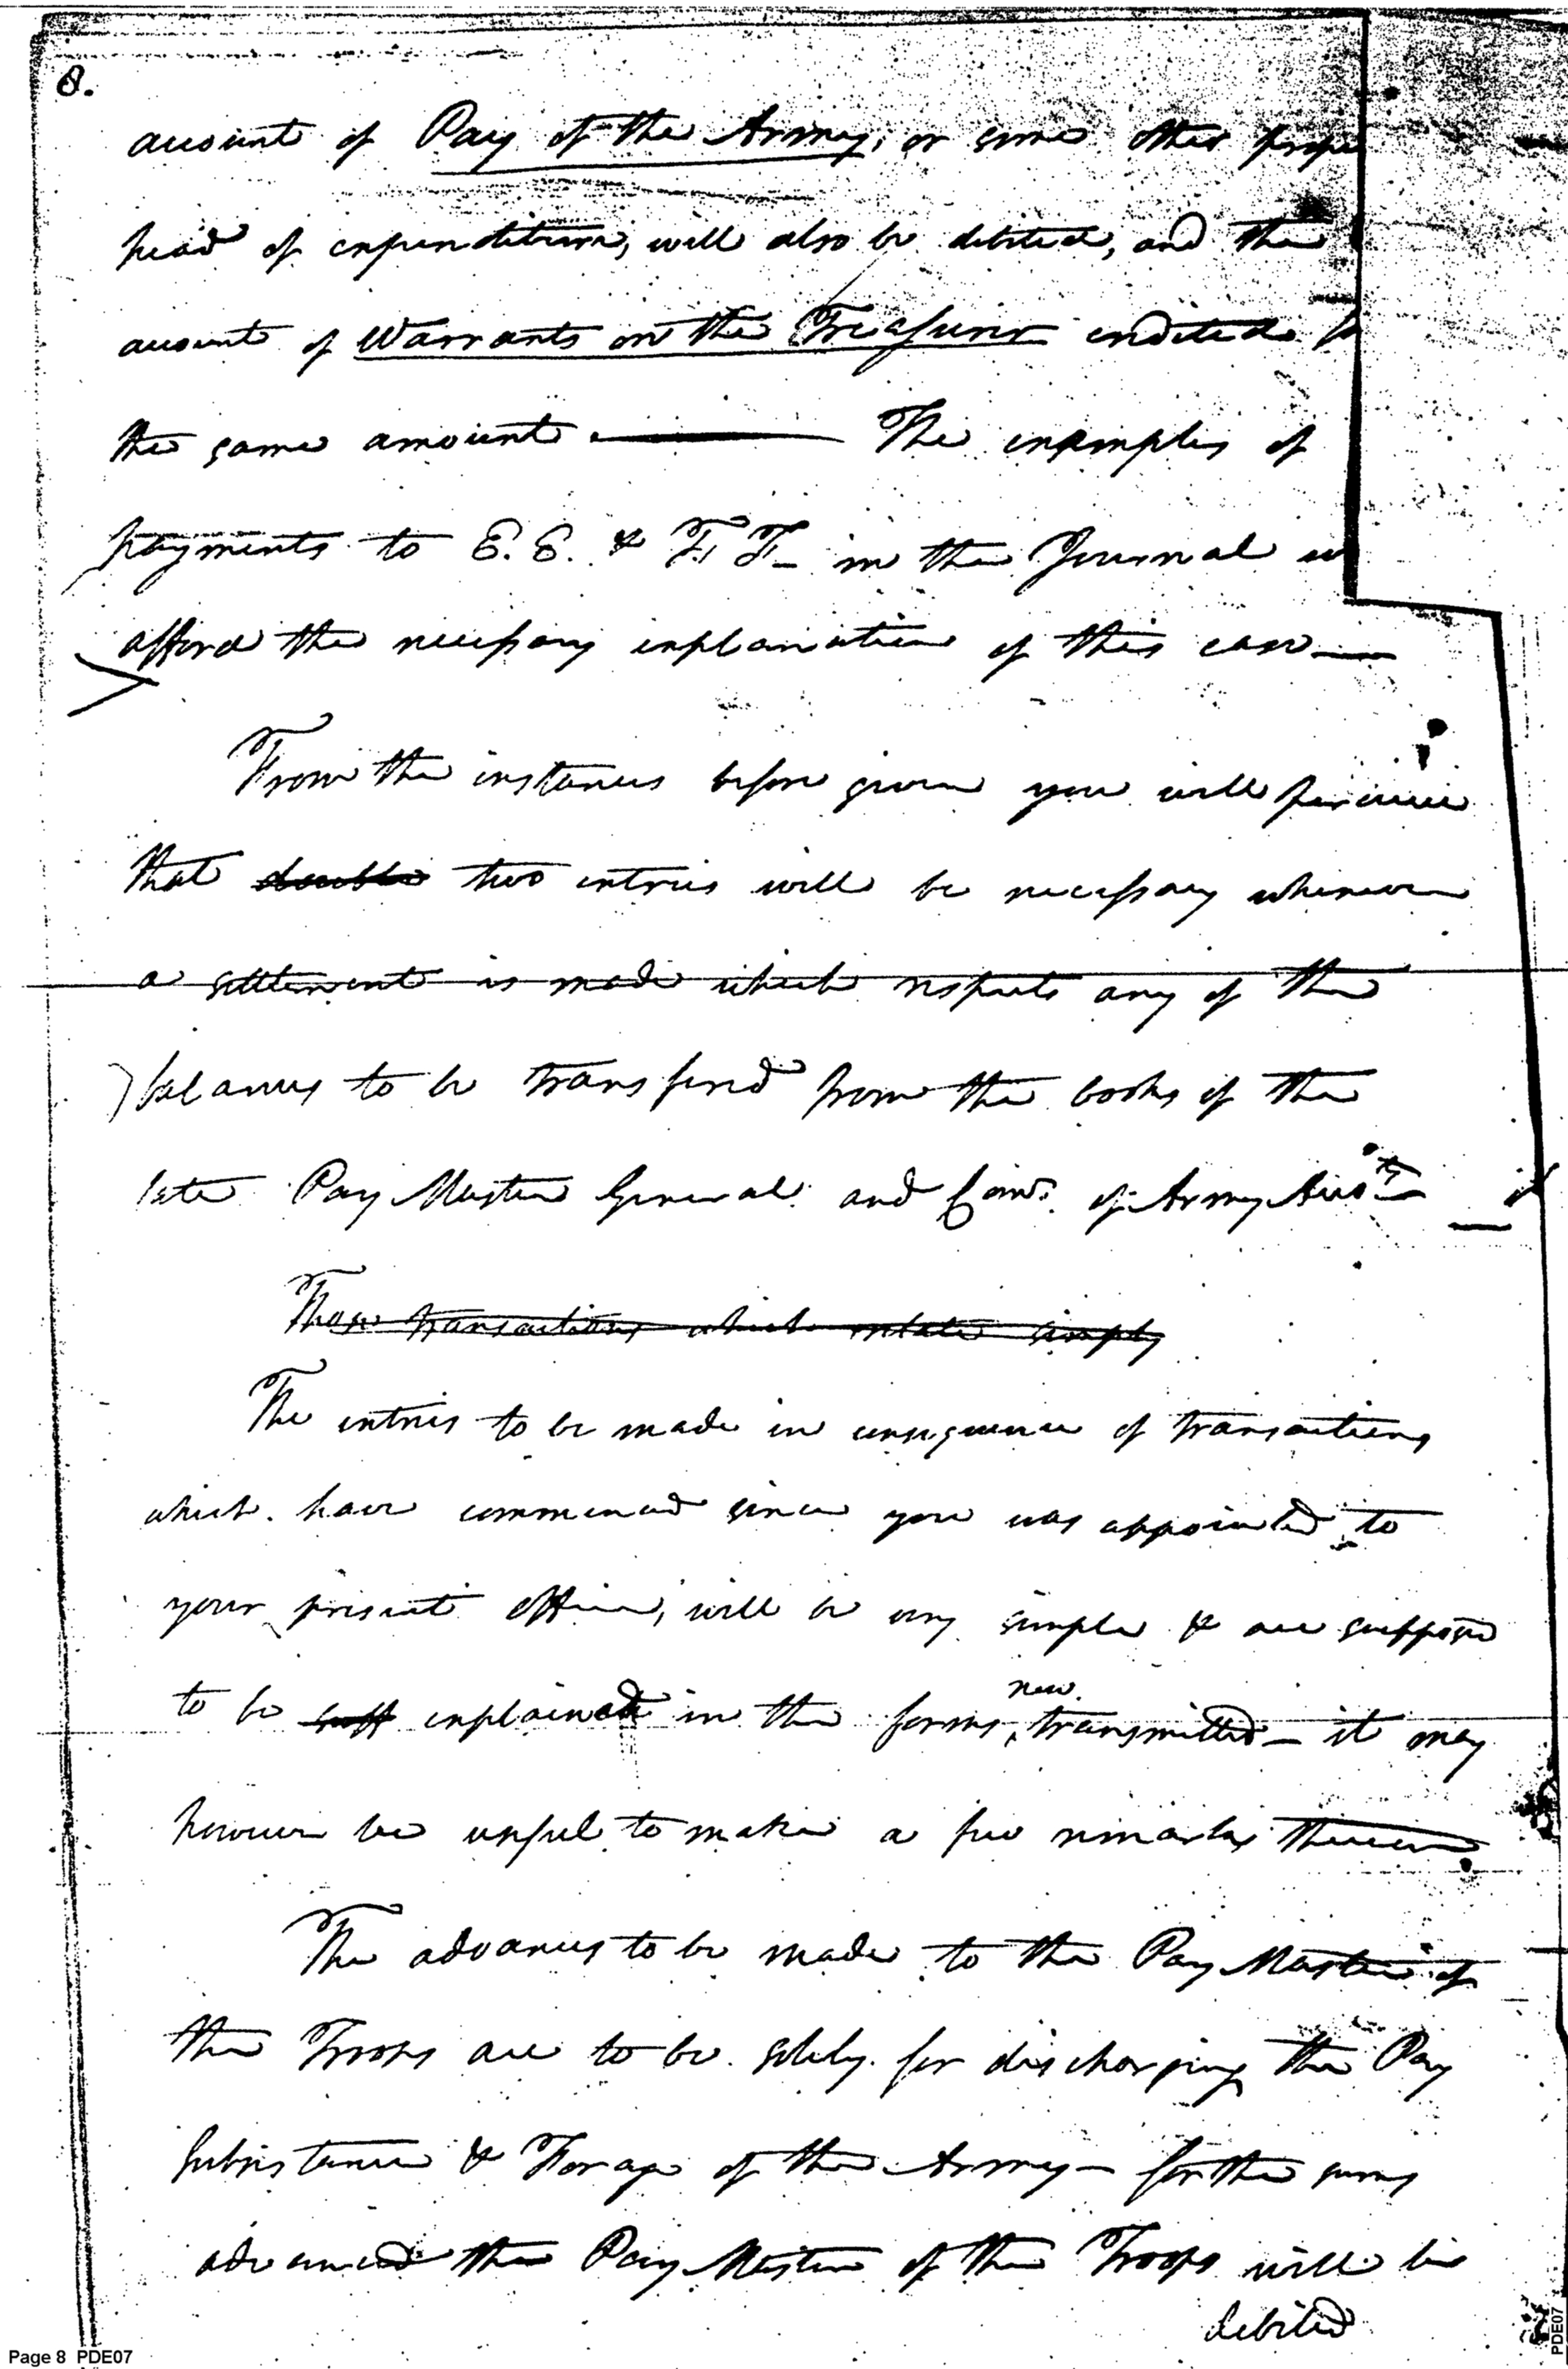 8.
account of Pay of the Army, or some other prope
head of expenditure, will also be debited, and the
account of Warrants on the Treasurer credited fo
the same amount. The examples of
payments to E. E. & F. F. in the Journal w
afford the necessary explanation of this case
From the instances before given you will perceive
that double two entries will be necessary whenever
a settlement is made which respects any of the
balances to be transfered from the books of the
late Pay Master General and Comr. of Army Accots
Those transactions which relate simply
The entries to be made in consequence of transactions
which have commenced since you was appointed to
your present office, will be very simple & are supposed
new
to be suff explained in the forms transmitted — it may
however be useful to make a few remarks thereon.
The advances to be made to the Pay Master of
the Troops are to be solely for discharging the Pay
Subsistence & Forage of the Army — for the sums
advanced the Pay Master of the Troops will be
debited
Page 8 PDE07
PDE07